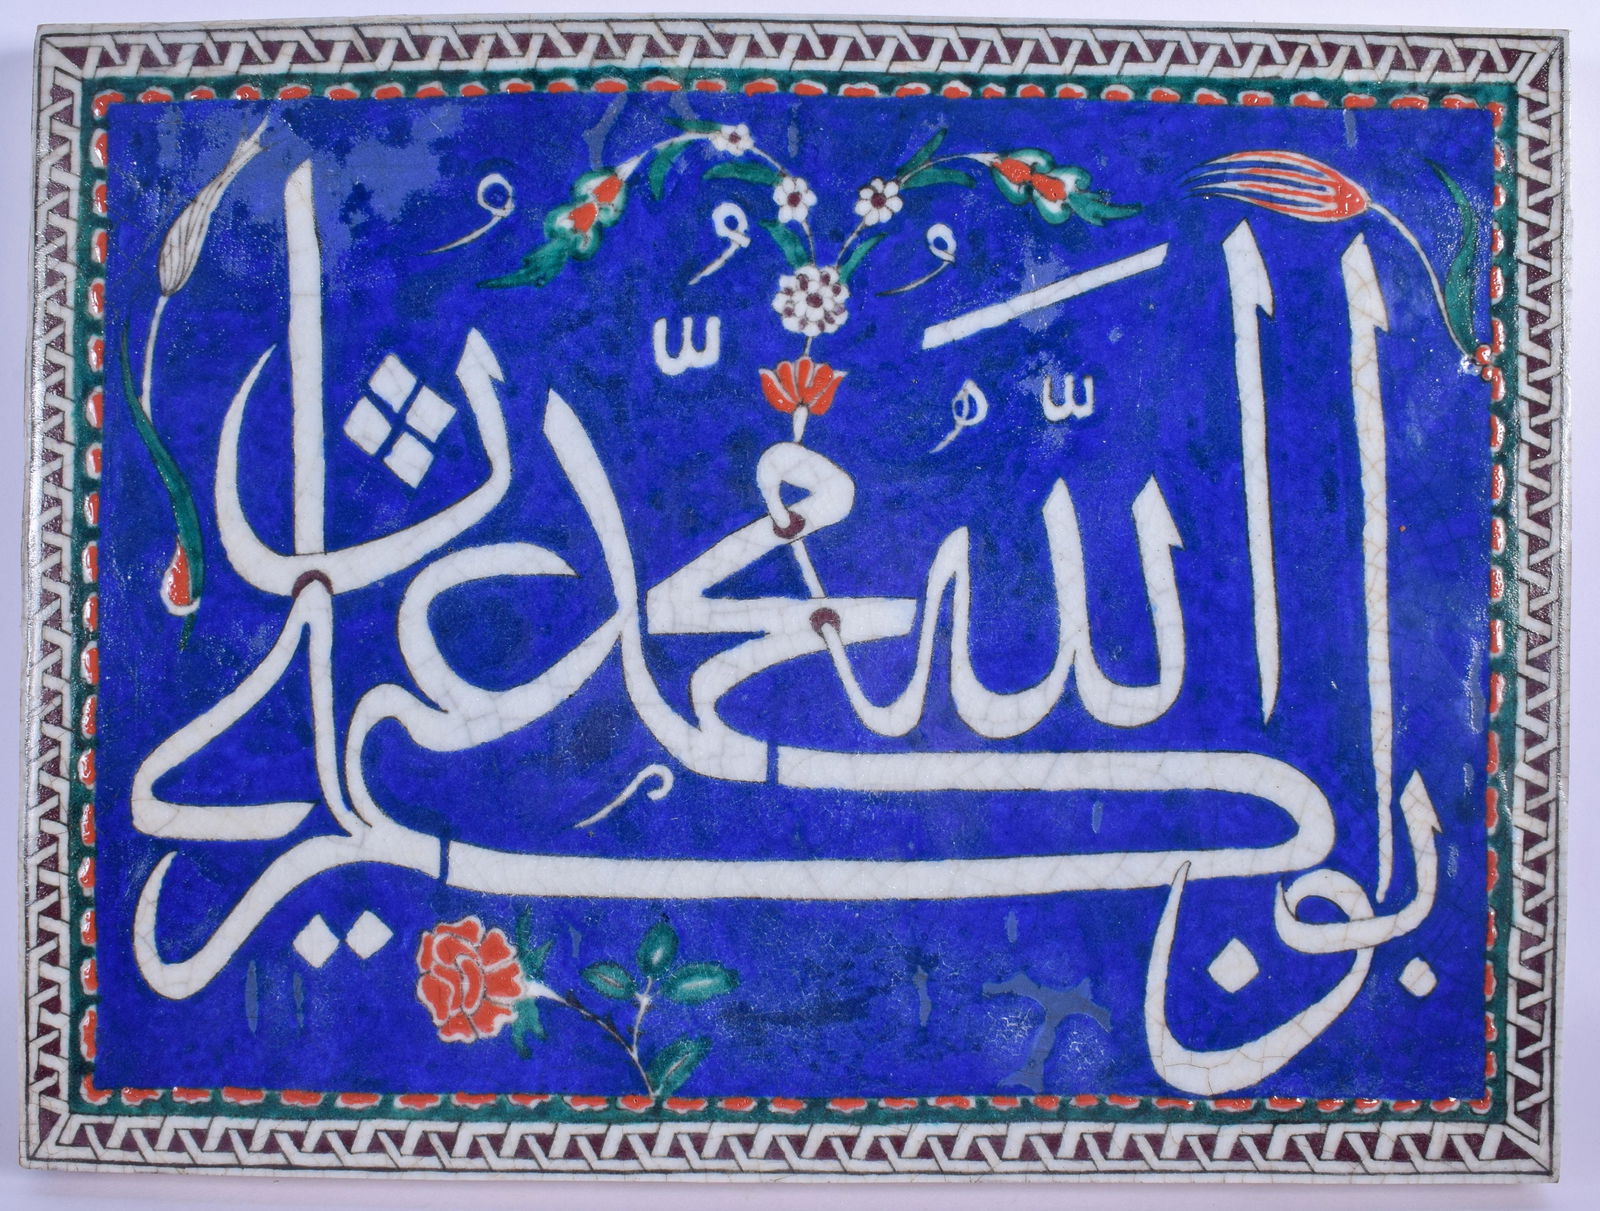 الله محمد
ابو بكر عمر عثمان علي